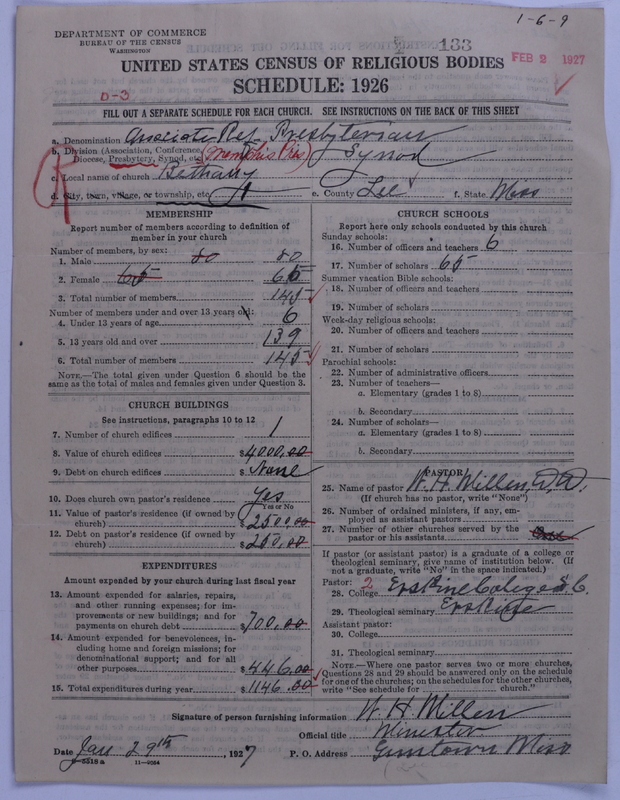 1-6-9
DEPARTMENT OF COMMERCE
BUREAU OF THE CENSUS
WASHINGTON
133
FEB 2 1927
UNITED STATES CENSUS OF RELIGIOUS BODIES
SCHEDULE: 1926
D-3
FILL OUT A SEPARATE SCHEDULE FOR EACH CHURCH. SEE INSTRUCTIONS ON THE BACK OF THIS SHEET
a. Denomination Associate Ref. Presbyterian
b. Division (Association, Conference, Diocese, Presbytery, Synod, etc. (Memphis Pres) Synod
c. Local name of church Bethany
d. City, town, village, or township, etc. e. County Lee f. State Miss
MEMBERSHIP
Report number of members according to definition of
member in your church
Number of members, by sex:
1. Male 80 80
2. Female 65 65
3. Total number of members 145
Number of members under and over 13 years old:
4. Under 13 years of age 6
5. 13 years old and over 139
6. Total number of members 145
NOTE.—The total given under Question 6 should be
same as the total of males and females given under Question 3.
CHURCH BUILDINGS
See instructions, paragraphs 10 to 12
7. Number of church edifices 1
8. Value of church edifices $4000.00
9. Debt on church edifices $None
10. Does church own pastor's residence Yes
Yes or No
11. Value of pastor's residence (if owned by
church) $2500.00
12. Debt on pastor's residence (if owned by
church) $250.00
EXPENDITURES
Amount expended by your church during last fiscal year
13. Amount expended for salaries, repairs,
and other running expenses; for im-
provements or new buildings; and for
payments on church debt $700.00
14. Amount expended for benevolences, in-
cluding home and foreign missions; for
denominational support; and for all
other purposes $446.00
15. Total expenditures during year $1146.00
CHURCH SCHOOLS
Report here only schools conducted by this church
Sunday schools:
16. Number of officers and teachers 6
17. Number of scholars 65
Summer vacation Bible schools:
18. Number of officers and teachers
19. Number of scholars
Week-day religious schools:
20. Number of officers and teachers
21. Number of scholars
Parochial schools:
22. Number of administrative officers
23. Number of teachers—
a. Elementary (grades 1 to 8)
b. Secondary
24. Number of scholars—
a. Elementary (grades 1 to 8)
b. Secondary
PASTOR
25. Name of pastor W. H. Millen, D.D.
(If church has no pastor, write "None")
26. Number of ordained ministers, if any, em-
ployed as assistant pastors
27. Number of other churches served by the
pastor or his assistants One
If pastor (or assistant pastor) is a graduate of a college or
theological seminary, give name of institution below. (If
not a graduate, write "No" in the space indicated.)
Pastor: 2
28. College Erskine College S.C.
29. Theological seminary Erskine
Assistant pastor:
30. College
31. Theological seminary
NOTE.—Where one pastor serves two or more churches,
Questions 28 and 29 should be answered only on the schedule
for one of the churches; on the schedules for the other churches,
write "See schedule for church."
Signature of person furnishing information W. H. Millen
Official title Minister
Date Jan 29th, 1927 P. O. Address Guntown Miss
3518 a 11-9264